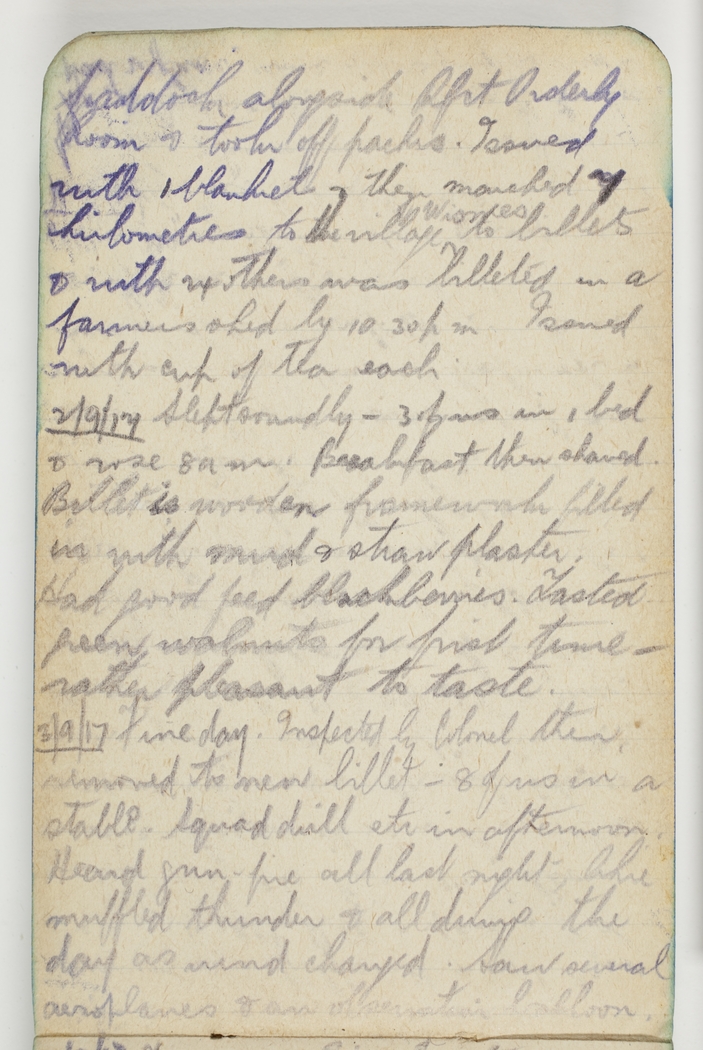 paddock alongside Bgt Orderly
Room & took off packs. Issued
with 1 blanket & then marched 7
kilometres to the village Wismes to billets
& with 24 others was billeted in a
farmers shed by 10 30 p m Issued
with cup of tea each
2/9/17 Slept soundly - 3 of us in 1 bed
& rose 8 a m. Breakfast then shaved.
Billet is wooden framework filled
in with mud & straw plaster.
Had good feed blackberries. Tasted
green walnuts for first time -
rather pleasant to taste.
3/9/17 Fine day. Inspected by Colonel then
removed to new billet - 8 of us in a
stable. Squad drill etc in afternoon.
Heard gun-fire all last night, like
muffled thunder & all during the
day as wind changed. Saw several
aeroplanes & an observation balloon.